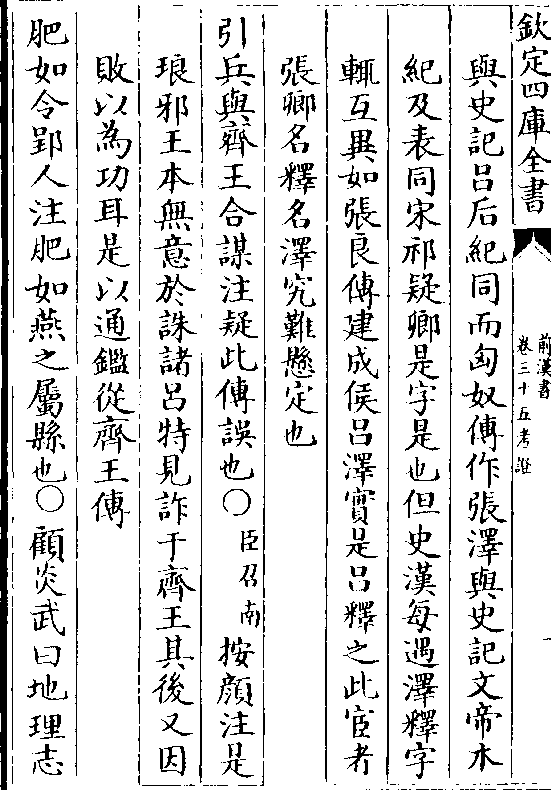 欽定四庫全書
前漢書
卷三十五考證
一
與史記吕后紀同而匈奴傳作張澤與史記文帝本
紀及表同宋祁疑卿是字是也但史漢每遇澤釋字
輒互異如張良傳建成侯吕澤實是吕釋之此宦者
張卿名釋名澤究難懸定也
引兵與齊王合謀注疑此傳誤也○臣召南按顔注是
琅邪王本無意於誅諸吕特見詐于齊王其後又因
敗以為功耳是以通鑑從齊王傳
肥如令郢人注肥如燕之屬縣也○顧炎武曰地理志